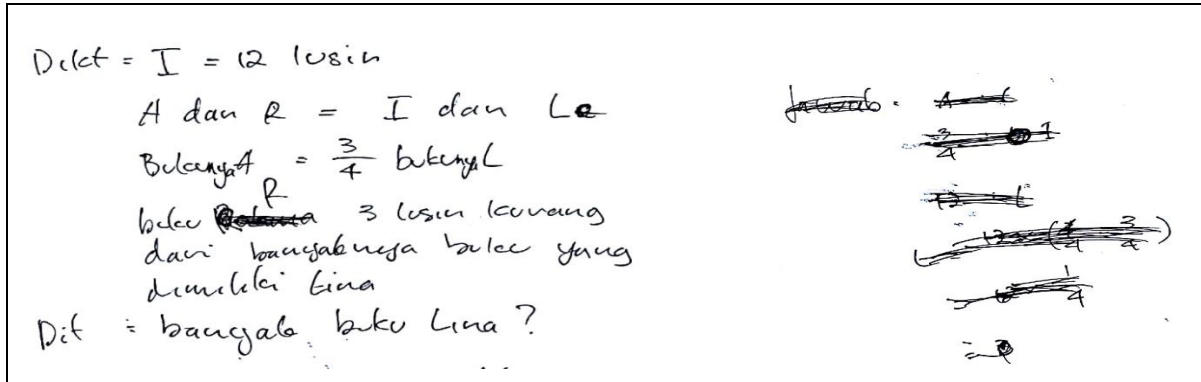 Dikt = I = 12 lusin
A dan R = I dan L
Bukunya A = 3/4 bukunya L
buku R 3 lusin kurang
dari banyaknya buku yang
dimiliki Lina
Dit = banyak buku Lina ?
Jawab = A L
3/4 I
12 L